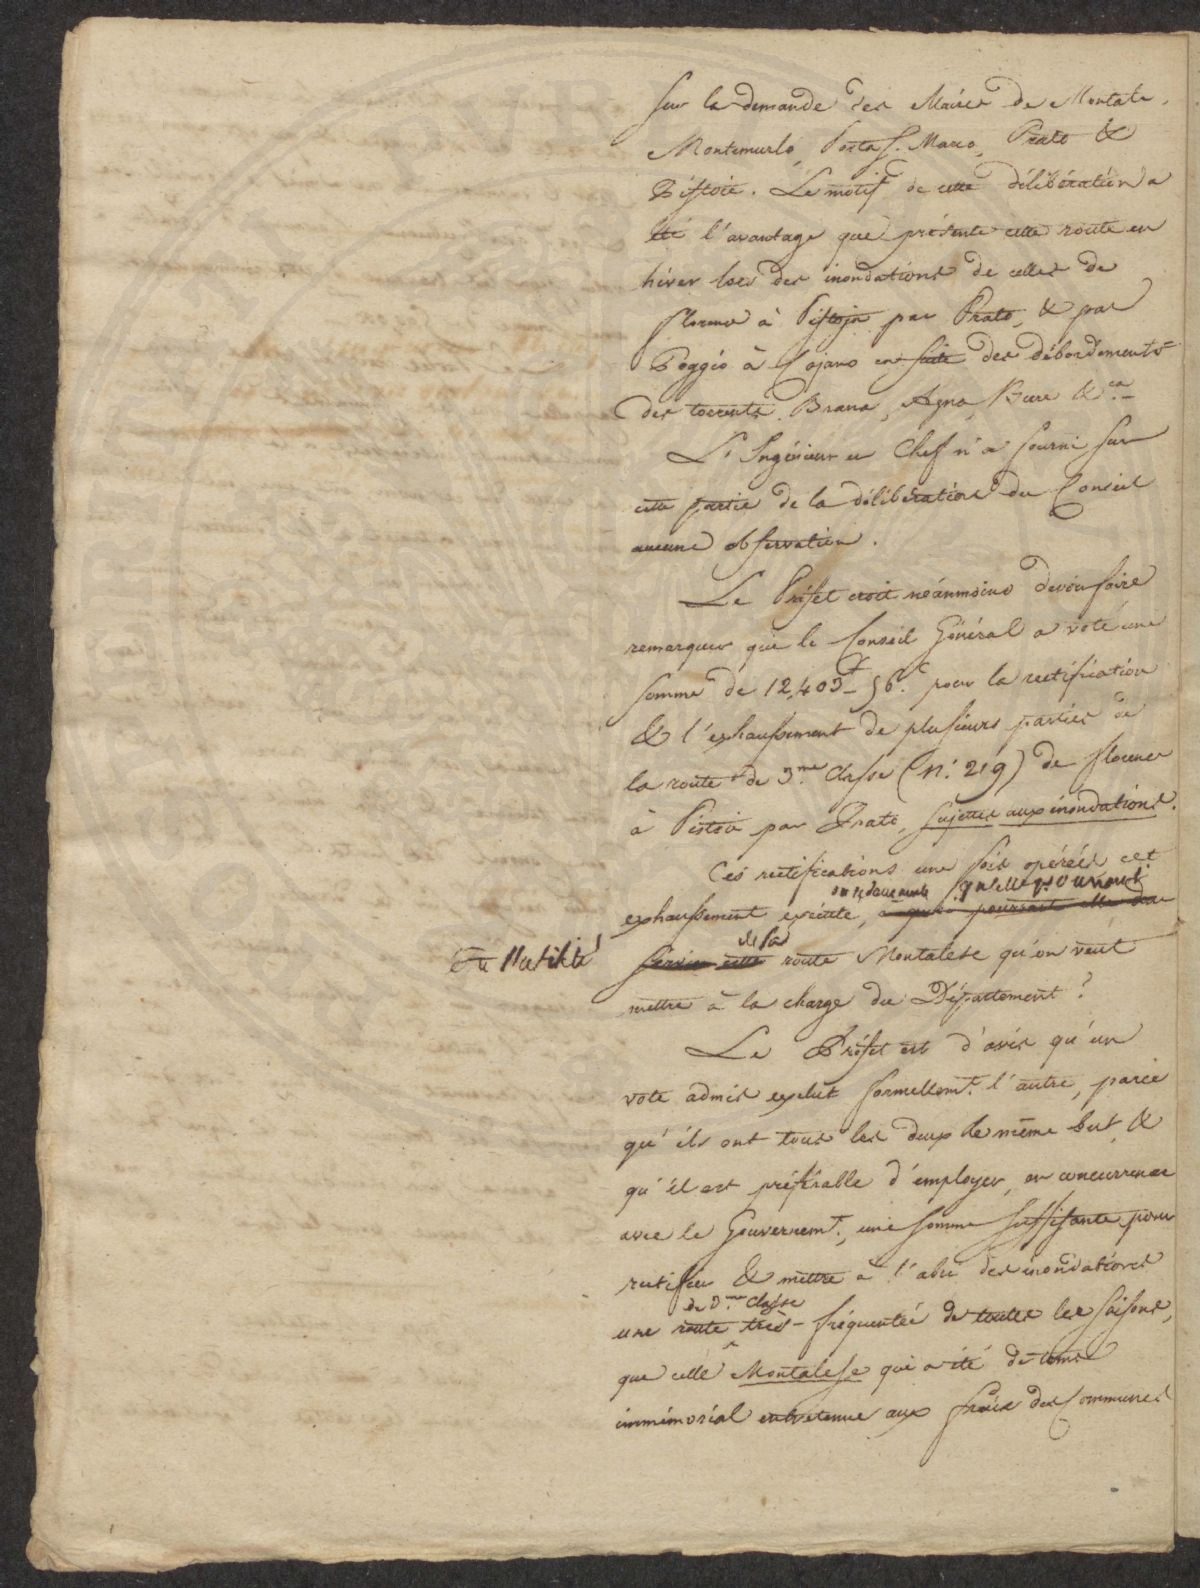 Sur la demande des Maires de Montale,
Montemurlo, Porta S. Marco, Prato &
Pistoie. Le motif de cette délibération a
été l'avantage que présente cette route en
hiver lors des inondations de celles de
florence à Pistoja par Prato, & par
Poggio à Cajano en suite des débordements
des torrents Brana, Agna, Bure &.ca
L'Ingénieur en Chef n'a fourni sur
cette partie de la délibération du Conseil
aucune observation.
Le Préfet croit néanmoins devoir faire
remarquer que le Conseil Général a voté une
somme de 12,403 f 56 c. pour la rectification
& l'exhaussement de plusieurs parties de
la route de 3.me Classe (N.° 219) de florence
à Pistoie par Prato, sujettes aux inondations.
Ces rectifications une fois opérées cet
on se demande quelle pourrait
exhaussement exécuté, à quoi pourrait elle donc
être l'utilité
de la
servir cette route Montalese qu'on veut
mettre à la charge du Département?
Le Préfet est d'avis qu'un
vote admis exclut formellem.t l'autre, parce
qu'ils ont tous les deux le même but, &
qu'il est préférable d'employer, en concurrence
avec le Gouvernem.t, une somme suffisante pour
rectifier & mettre à l'abri des inondations
de 3.me Classe
une route très-fréquentée de toutes les saisons,
que celle Montalese qui a été de tems
immémorial entretenue aux frais des Communes